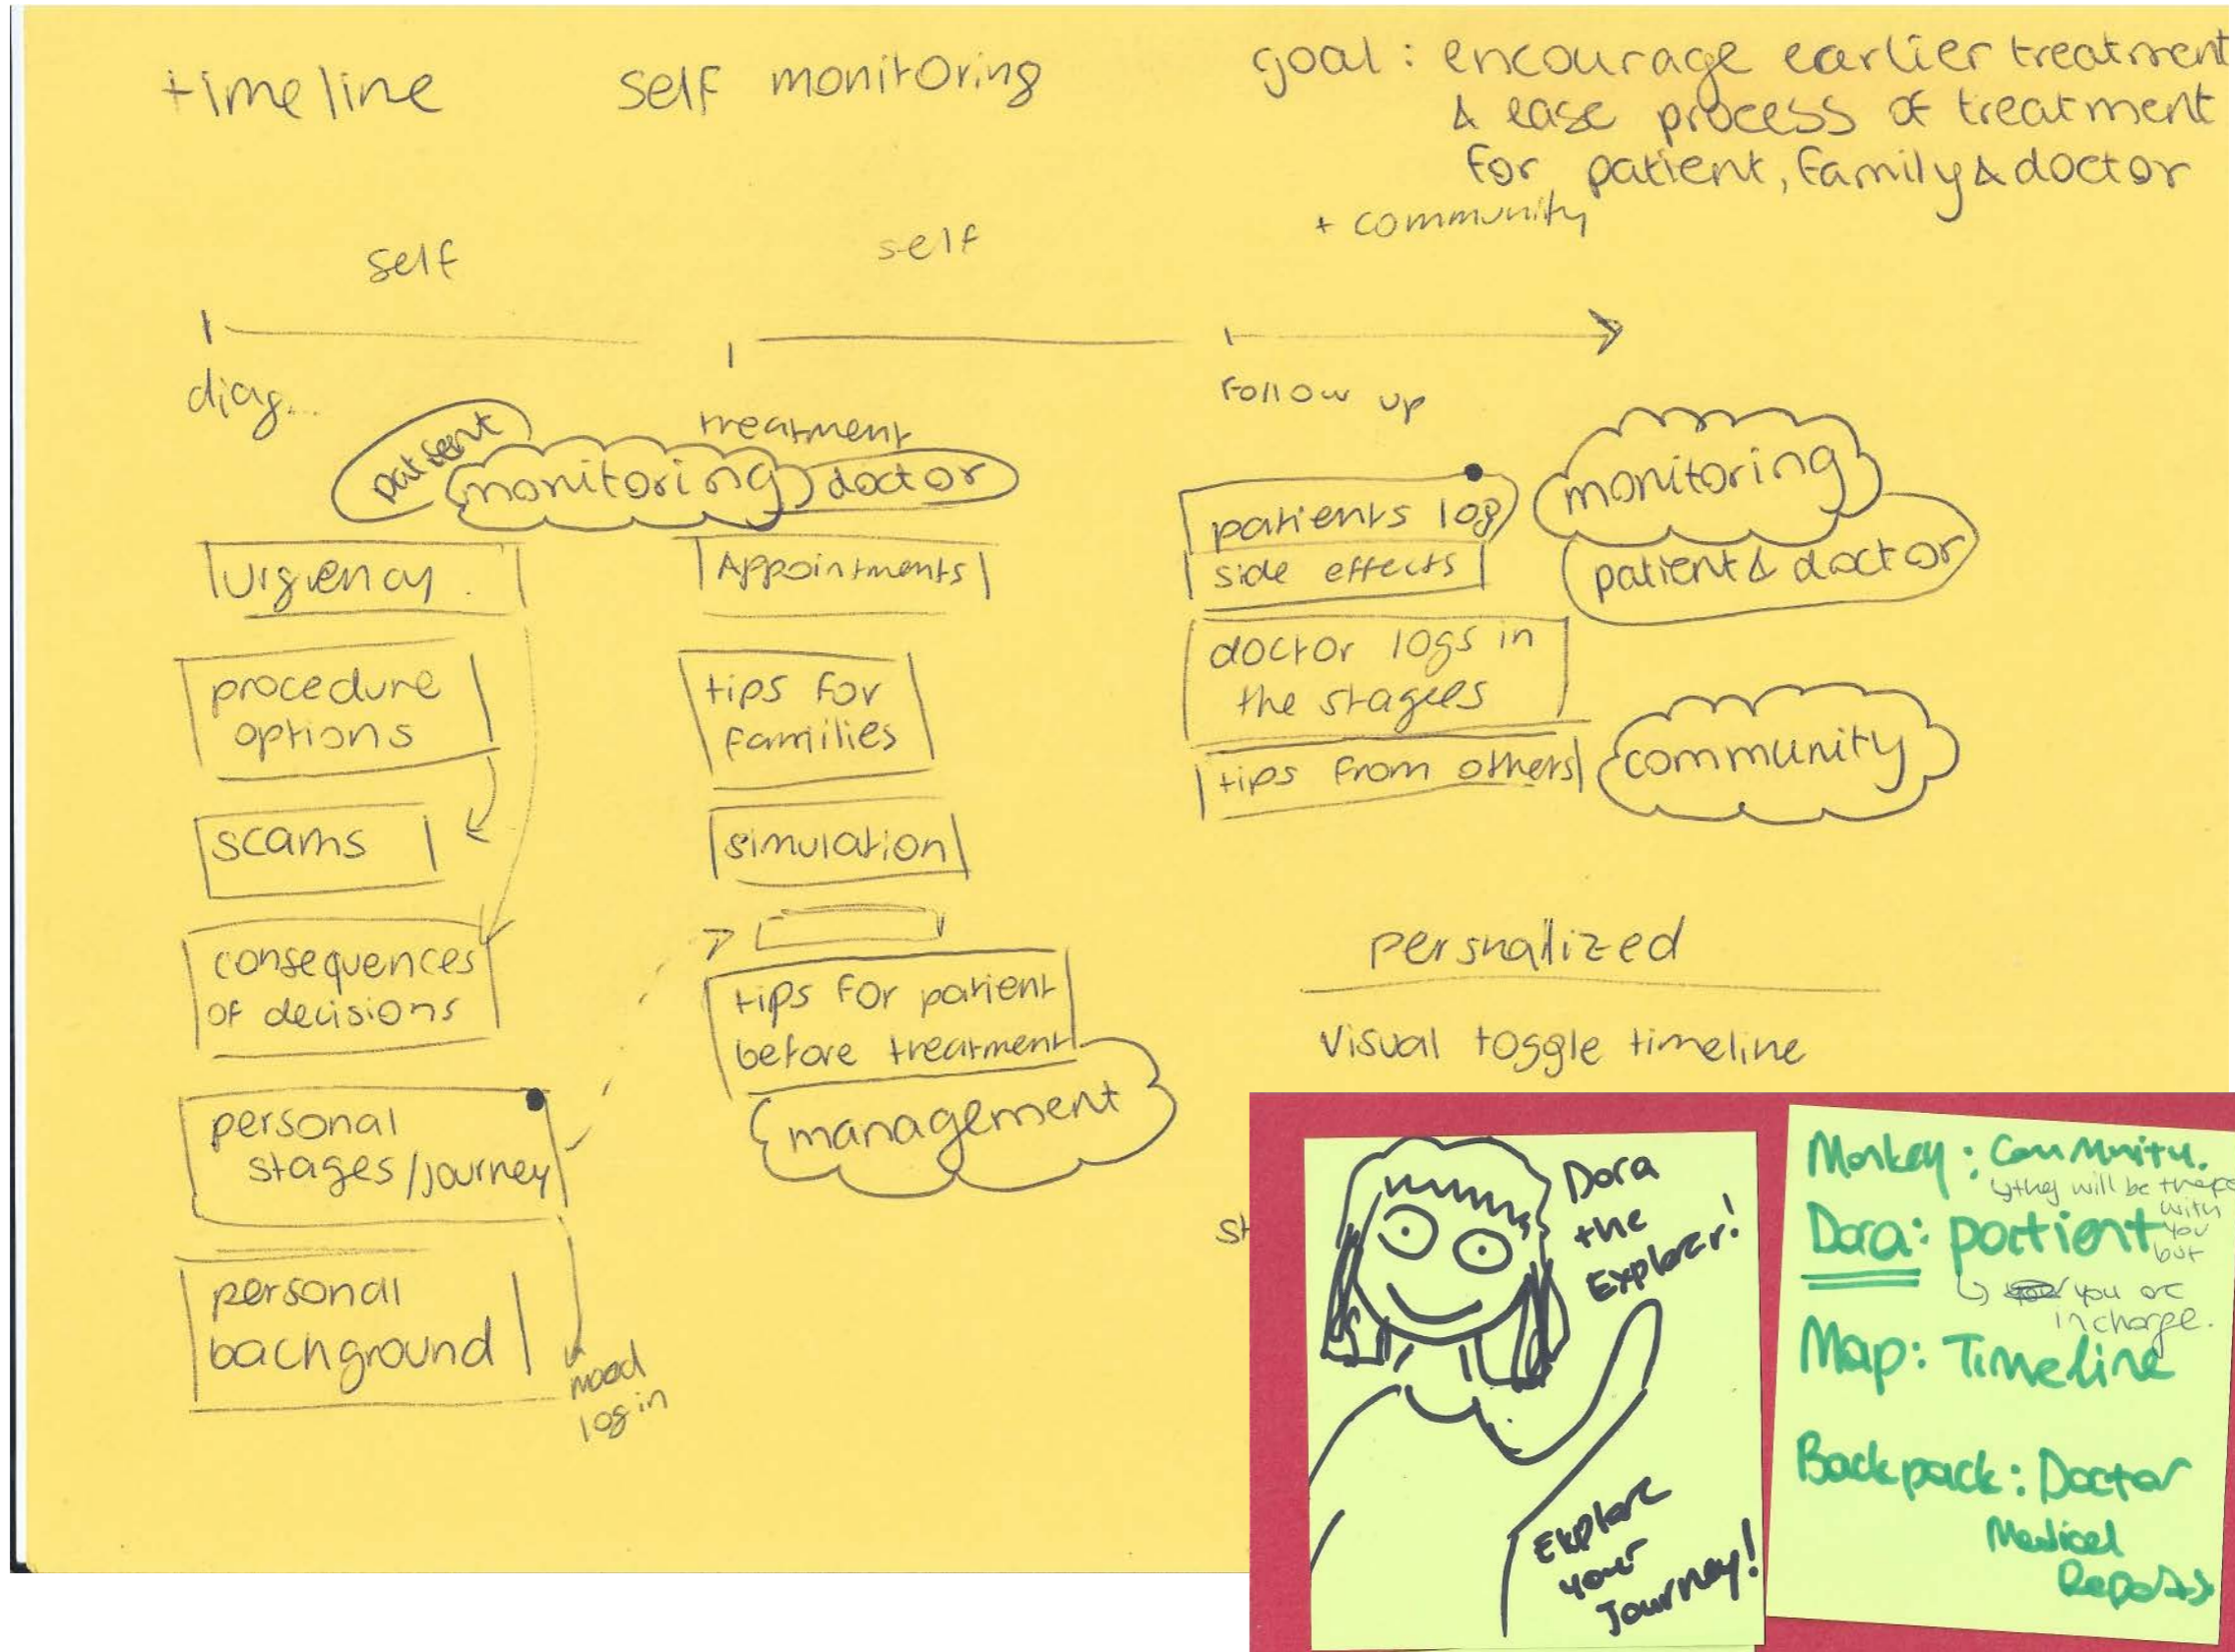 timeline
self monitoring
goal: encourage earlier treatment
& ease process of treatment
for patient, family & doctor
+ community
self
self
diag...
treatment
Follow up
patient
monitoring
doctor
urgency
procedure
options
scams
consequences
of decisions
personal
stages/journey
personal
background
mood
log in
Appointments
tips for
families
simulation
tips for patient
before treatment
management
patients log
side effects
monitoring
patient & doctor
doctor logs in
the stagees
tips from others
community
persnalized
visual toggle timeline
Dora
the
Explorer!
Explore
your
Journey!
Monkey: Community.
they will be there
with
you
but
Dora: patient
you are
in charge.
Map: Timeline
Backpack: Doctor
Medical
Reports